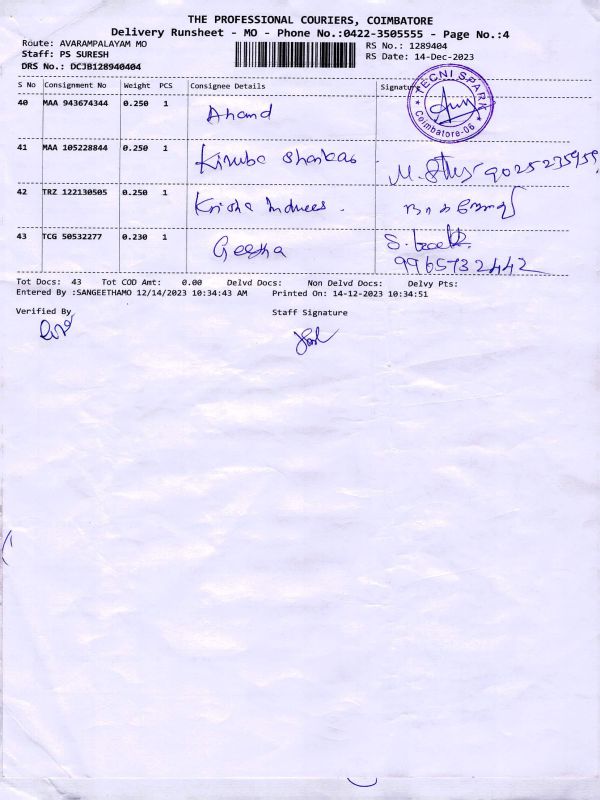 THE PROFESSIONAL COURIERS, COIMBATORE
Delivery Runsheet - MO - Phone No.:0422-3505555 - Page No.:4
Route: AVARAMPALAYAM MO RS No.: 1289404
Staff: PS SURESH RS Date: 14-Dec-2023
DRS No.: DCJB128940404
S No Consignment No Weight PCS Consignee Details Signature
TECNI SPARK
Coimbatore-06
40 MAA 943674344 0.250 1 Anand
41 MAA 105228844 0.250 1 Kiruba Shankar 9025235959
42 TRZ 122130505 0.250 1
43 TCG 50532277 0.230 1 Geetha S.
9965732442
Tot Docs: 43 Tot COD Amt: 0.00 Delvd Docs: Non Delvd Docs: Delvy Pts:
Entered By :SANGEETHAMO 12/14/2023 10:34:43 AM Printed On: 14-12-2023 10:34:51
Verified By Staff Signature